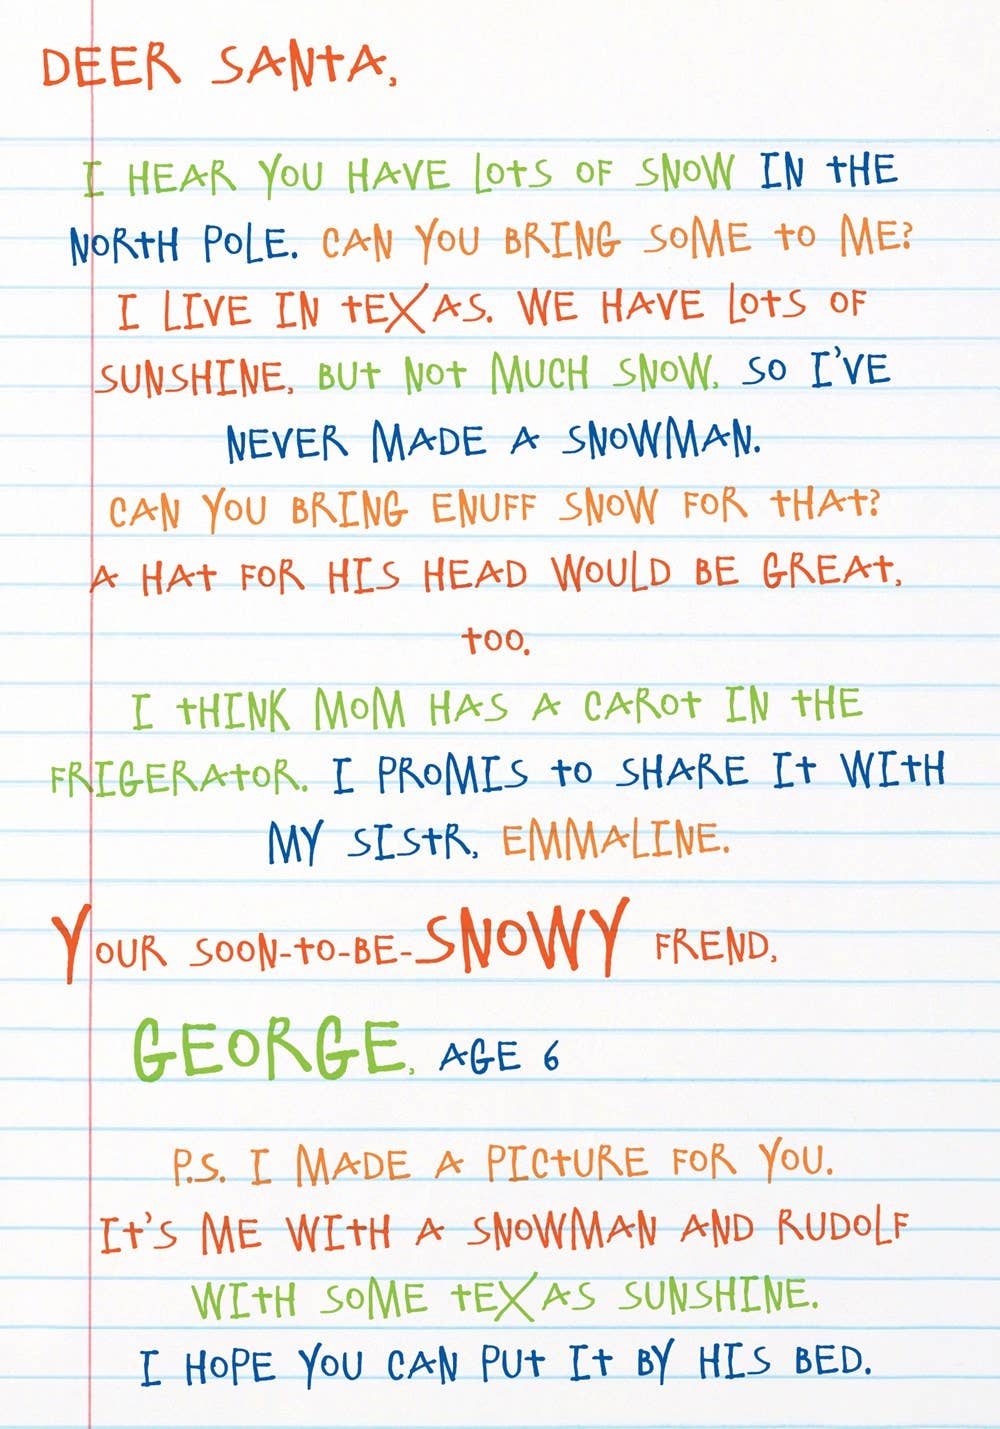 DEER SANTA,
I HEAR YOU HAVE LOTS OF SNOW IN THE
NORTH POLE. CAN YOU BRING SOME TO ME?
I LIVE IN TEXAS. WE HAVE LOTS OF
SUNSHINE, BUT NOT MUCH SNOW, SO I'VE
NEVER MADE A SNOWMAN.
CAN YOU BRING ENUFF SNOW FOR THAT?
A HAT FOR HIS HEAD WOULD BE GREAT,
TOO.
I THINK MOM HAS A CAROT IN THE
FRIGERATOR. I PROMIS TO SHARE IT WITH
MY SISTR, EMMALINE.
YOUR SOON-TO-BE-SNOWY FREND,
GEORGE, AGE 6
P.S. I MADE A PICTURE FOR YOU.
IT'S ME WITH A SNOWMAN AND RUDOLF
WITH SOME TEXAS SUNSHINE.
I HOPE YOU CAN PUT IT BY HIS BED.